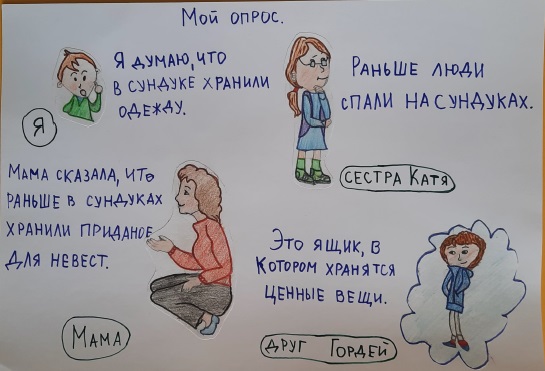 Мой опрос.
Я думаю, что
в сундуке хранили
одежду.
Я
Раньше люди
спали на сундуках.
сестра Катя
Мама сказала, что
раньше в сундуках
хранили приданое
для невест.
Мама
Это ящик, в
котором хранятся
ценные вещи.
друг Гордей